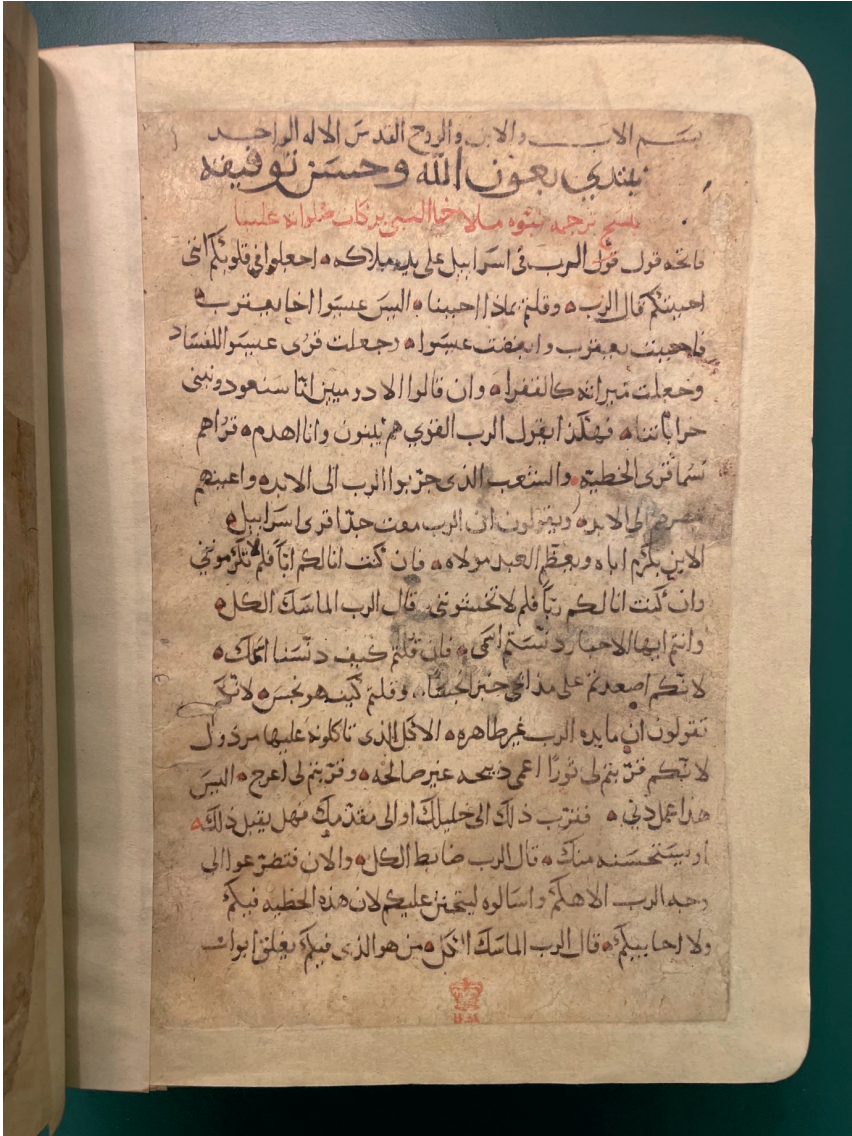 بسم الاب والابن والروح القدس الاله الواحد
نبتدي بعون الله وحسن توفيقه
بنسخ ترجمه نبوه ملاخيا النبي بركات صلواته علينا
فاتحه قول قول الرب في اسراييل على يد ملاكه ه اجعلوا في قلوبكم انني
احببتكم قال الرب ه وقلتم بماذا احببنا ه اليس عيسوا اخا يعقوب ه
فاحببت يعقوب وابغضت عيسوا ه وجعلت قرى عيسوا للفساد
وجعلت ميراثه كالقفرا ه وان قالوا الادوميين اننا سنعود ونبني
خراباتنا ه فهكذا يقول الرب القوي هم يبنون وانا اهدم ه قراهم
تسما قرى الخطية ه والشعب الذى جربوا الرب الى الابد ه واعينهم
الى الابد ه ويقولون ان الرب جدا قرى اسراييل ه
الابن يكرم اباه ويعظم العبد مولاه ه فان كنت انا لكم ابًا فلم لا تكرمونني
وان كنت انا لكم ربًا فلم لا تخشوننى قال الرب الماسك الكل ه
وانتم ايها الاحبار دنستم اسمى ه فان قلتم كيف دنسنا اسمك ه
لانكم اصعدتم على مذابحي خبز انجسًا .. وقلتم كيف هو نجس ه لانكم
تقولون ان مايده الرب غير طاهره ه الاكل الذى تاكلونه عليها مرذول
لانكم قربتم لى ثورًا اعمى ذبيحه غير صالحه ه وقربتم لى اعرج ه اليس
هذا عمل دني ه فقرب ذلك الى خليلك او الى مقدمك فهل يقبل ذلك ه
او يستحسنه منك ه قال الرب ضابط الكل ه والان فتضرعوا الى
وجه الرب الاهكم واسالوه ليتحنن عليكم لان هذه الخطيه فيكم
ولا احابيكم ه قال الرب الماسك الكل ه من هو الذى فيكم يغلق ابواب